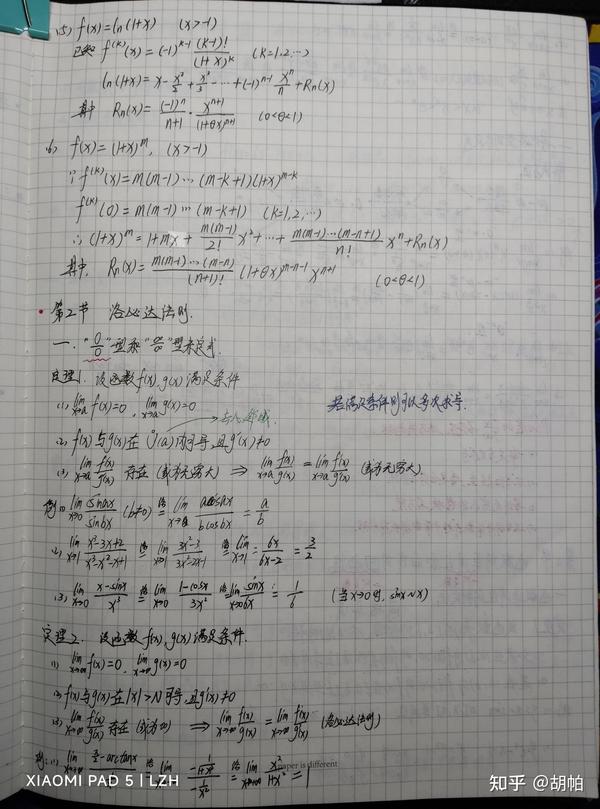 (5) f(x)=ln(1+x) (x>-1)
已知 f^(k)(x)=(-1)^(k-1) (k-1)!/(1+x)^k (k=1,2,…)
ln(1+x)=x-x²/2+x³/3-…+(-1)^(n-1) x^n/n+Rn(x)
其中 Rn(x)=(-1)^n/(n+1)·x^(n+1)/(1+θx)^(n+1) (0<θ<1)
(6) f(x)=(1+x)^m, (x>-1)
∵f^(k)(x)=m(m-1)…(m-k+1)(1+x)^(m-k)
f^(k)(0)=m(m-1)…(m-k+1) (k=1,2,…)
∴(1+x)^m=1+mx+m(m-1)/2! x²+…+m(m-1)…(m-n+1)/n! x^n+Rn(x)
其中, Rn(x)=m(m-1)…(m-n)/(n+1)! (1+θx)^(m-n-1) x^(n+1) (0<θ<1)
第2节 洛必达法则.
一. "0/0"型和"∞/∞"型未定式.
定理1. 设函数f(x),g(x)满足条件
(1) lim x→a f(x)=0, lim x→a g(x)=0
若满足条件则可以多次求导.
去心邻域.
(2) f(x)与g(x)在Ů(a)内可导,且g'(x)≠0
(3) lim x→a f'(x)/g'(x) 存在(或为无穷大) ⇒ lim x→a f(x)/g(x)=lim x→a f'(x)/g'(x) (或为无穷大)
例(1) lim x→0 sinax/sinbx (b≠0) 洛= lim x→0 acosax/bcosbx = a/b
(2) lim x→1 x³-3x+2/x³-x²-x+1 洛= lim x→1 3x²-3/3x²-2x-1 洛= lim x→1 = 6x/6x-2 = 3/2
(3) lim x→0 x-sinx/x³ 洛= lim x→0 1-cosx/3x² 洛= lim x→0 sinx/6x = 1/6 (当x→0时, sinx~x)
定理2. 设函数f(x),g(x)满足条件.
(1) lim x→∞ f(x)=0, lim x→∞ g(x)=0
(2) f(x)与g(x)在|x|>N可导,且g'(x)≠0
(3) lim x→∞ f'(x)/g'(x) 存在(或为∞) ⇒ lim x→∞ f(x)/g(x)=lim x→∞ f'(x)/g'(x) (洛必达法则)
例:(1) lim π/2-arctanx 洛= lim -1/1+x²/-1/x² = lim x²/1+x² = 1
paper is different
XIAOMI PAD 5 | LZH
知乎 @胡帕